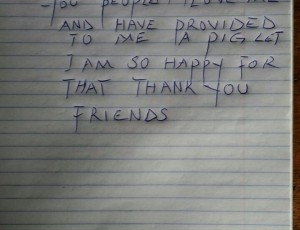 YOU PEOPLE LOVE ME
AND HAVE PROVIDED
TO ME A PIGLET
I AM SO HAPPY FOR
THAT THANK YOU
FRIENDS